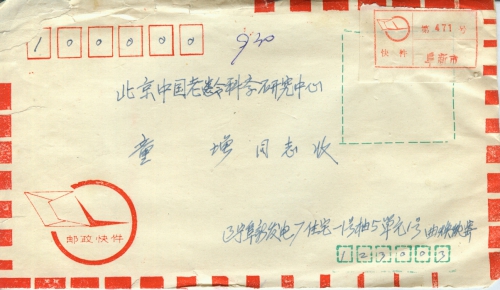 100000
930
第 471 号
快件
阜新市
北京中国老龄科学研究中心
童 增 同志收
邮政快件
辽宁阜新发电厂住宅一号楼5单元1号
123003